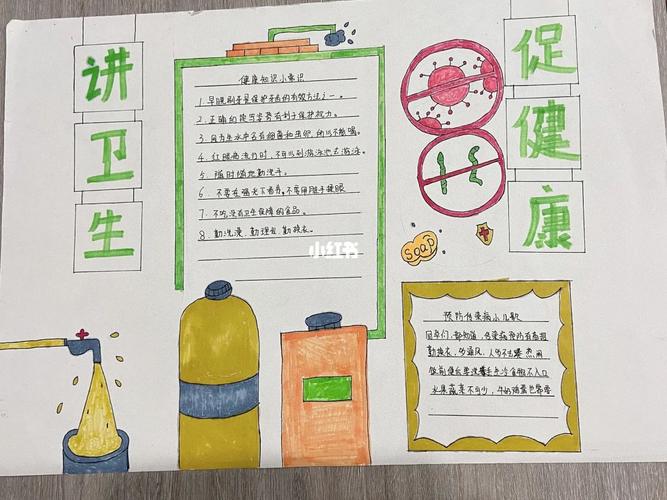 讲卫生
促健康
健康知识小常识
1.早晚刷牙是保护牙齿的有效方法之一。
2.正确的读写姿势有利于保护视力。
3.因为生水中含有细菌和虫卵,所以不能喝。
4.红眼病流行时,不可以到游泳池去游泳。
5.随时随地勤洗手。
6.不要在强光下看书,不要用脏手揉眼
7.不吃没有卫生保障的食品。
8.勤洗澡,勤理发,勤换衣。
小红书
soap
预防传染病小儿歌
同学们,都知道,传染病预防有高招
勤换衣,多通风,人多不去凑热闹
饭前便后要洗手 生冷食物不入口
水果蔬菜不可少,牛奶鸡蛋也需要